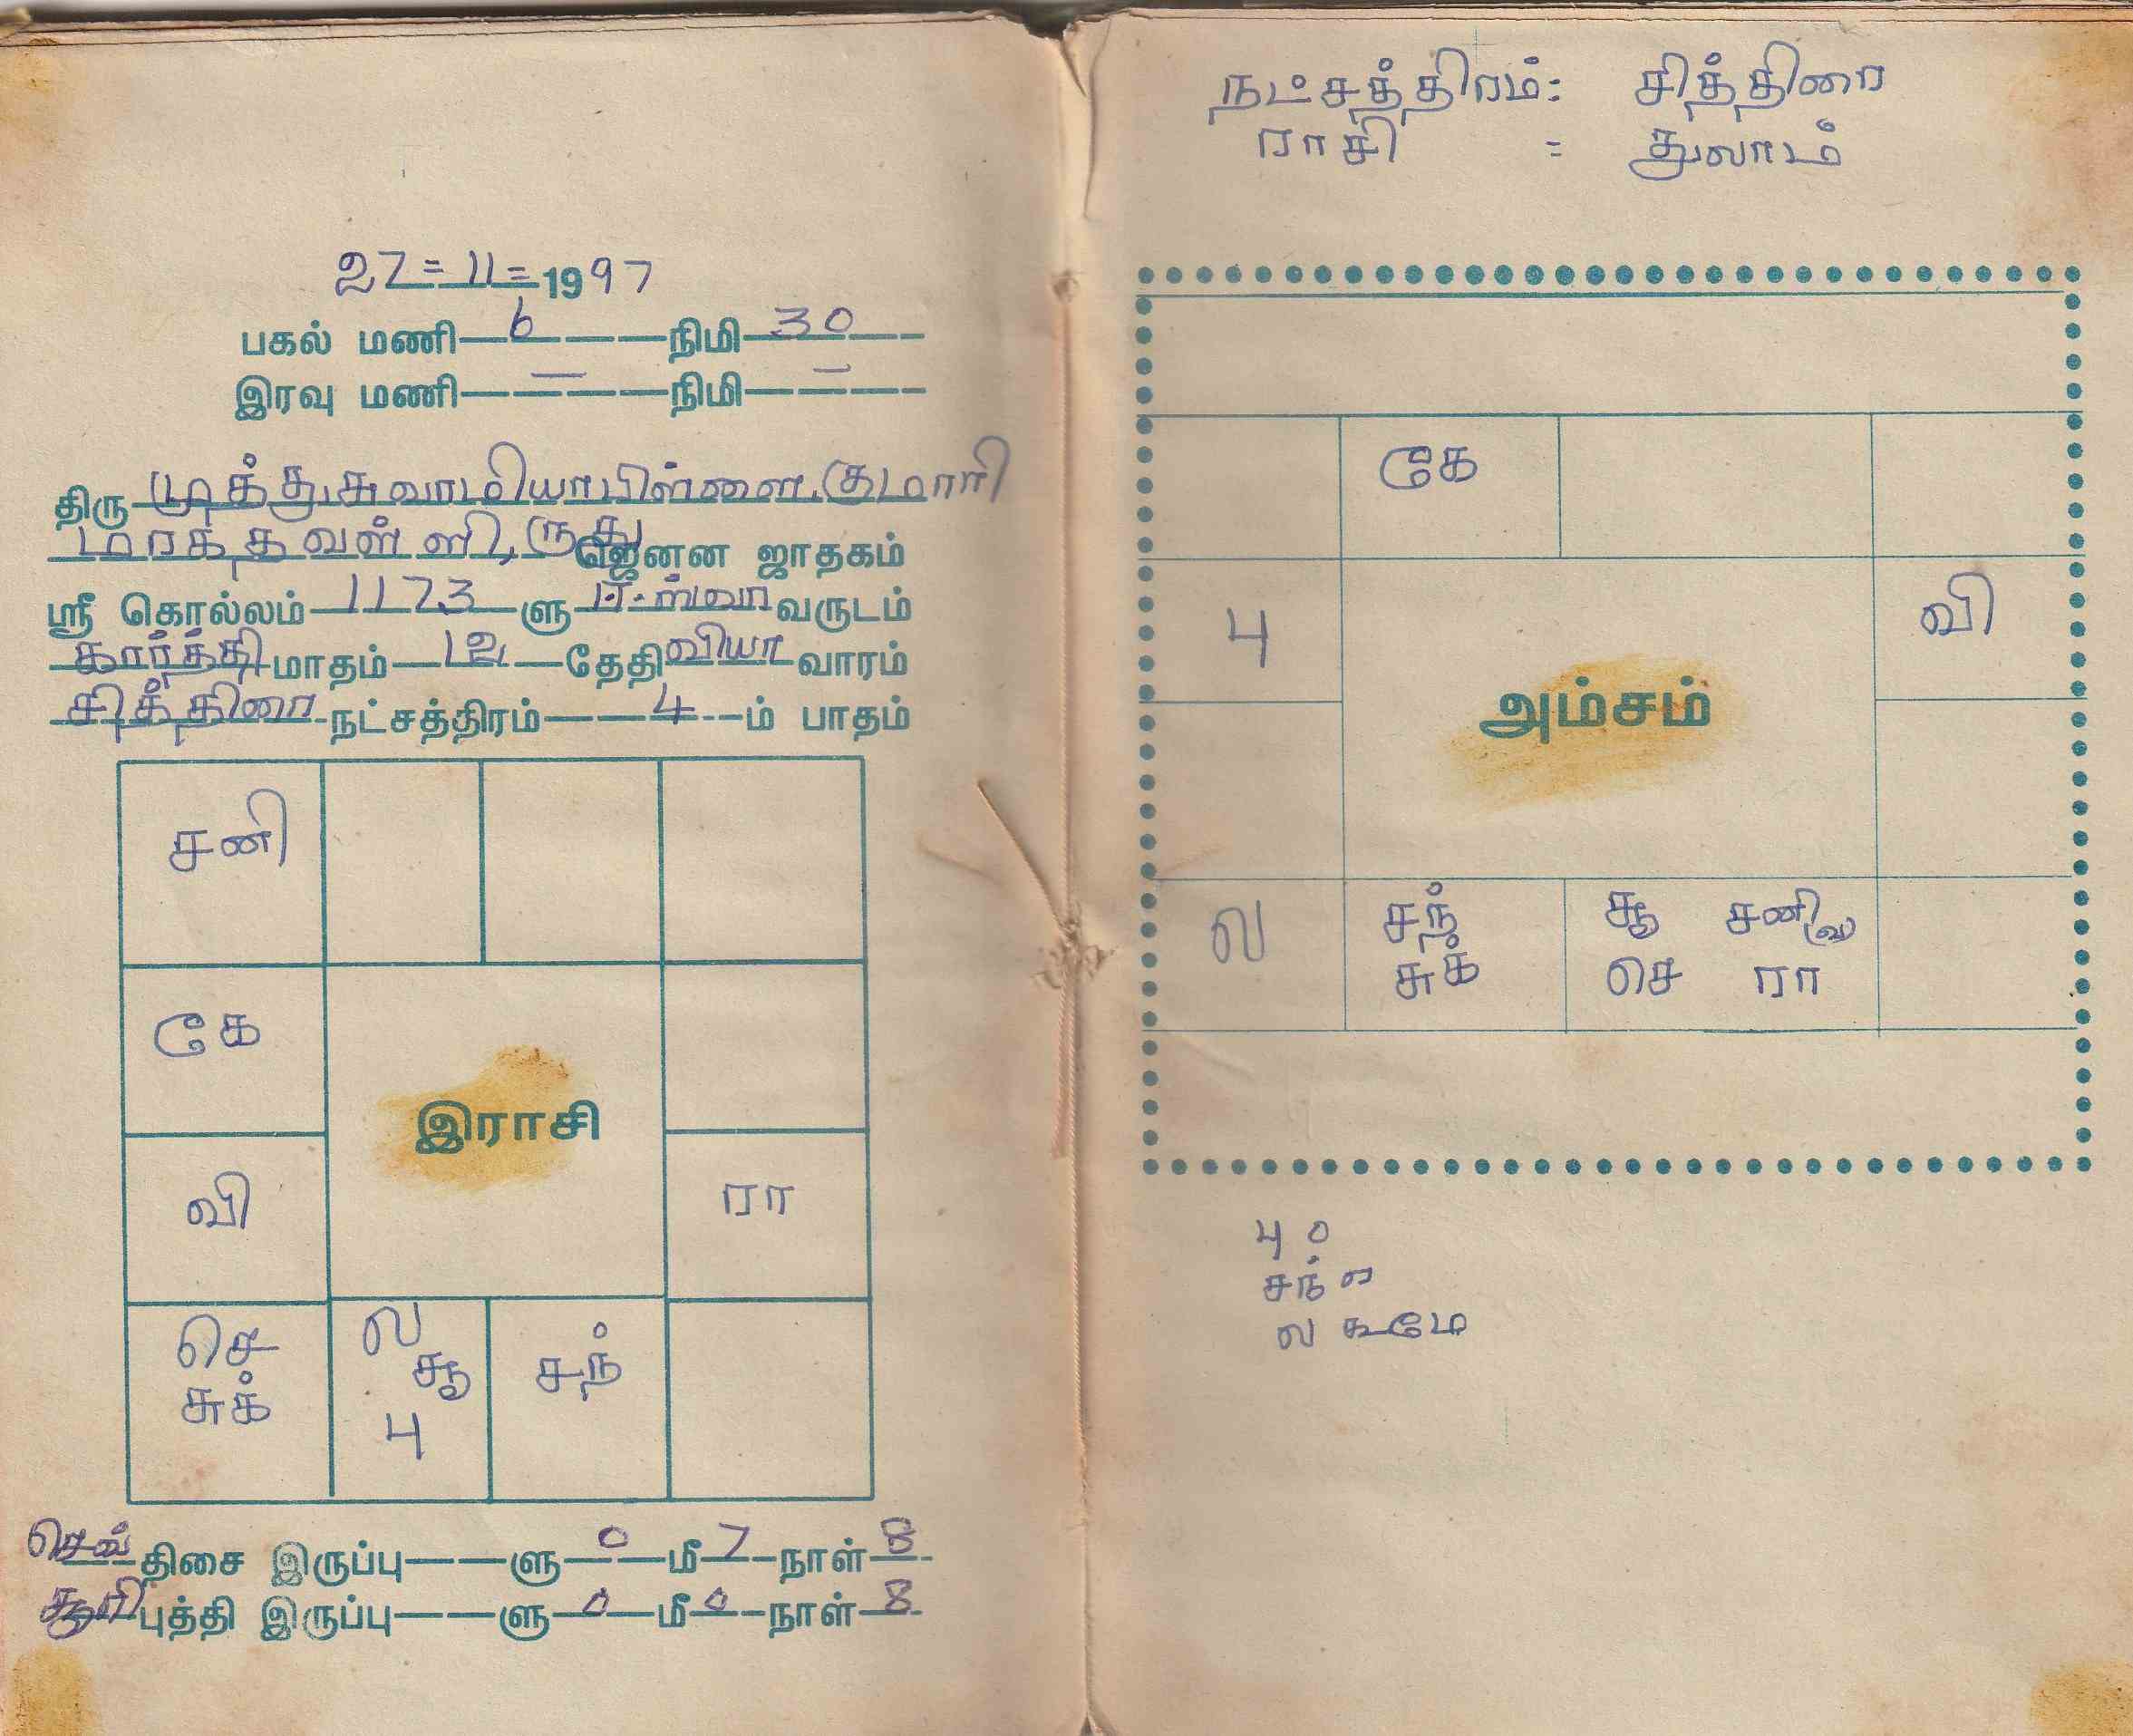 27=11=1997
பகல் மணி 6 நிமி 30
இரவு மணி — நிமி —
திரு முத்துசுவாமியாபிள்ளை, குமாரி
மரகதவள்ளி, ருது ஜெனன ஜாதகம்
ஸ்ரீ கொல்லம் 1173 ளு ஈஸ்வர வருடம்
கார்த்தி மாதம் 12 தேதி வியா வாரம்
சித்திரை நட்சத்திரம் 4 ம் பாதம்
சனி
கே
இராசி
வி
ரா
செ
சுக்
ல
சூ
பு
சந்
செவ் திசை இருப்பு ளு 0 மீ 7 நாள் 8
சூரி புத்தி இருப்பு ளு 0 மீ 0 நாள் 8
நட்சத்திரம்: சித்திரை
ராசி = துலாம்
கே
பு
வி
அம்சம்
ல
சந்
சுக்
சூ சனி
செ ரா
பு 0
சந்
ல